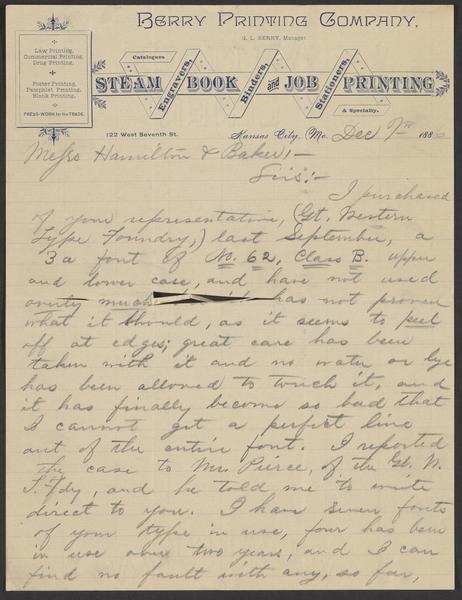 BERRY PRINTING COMPANY.
G. L. BERRY, Manager.
Law Printing,
Commercial Printing,
Drug Printing.
Poster Printing,
Pamphlet Printing,
Blank Printing.
PRESS-WORK for the TRADE.
Catalogues
STEAM Engravers, BOOK Binders, and JOB Stationers, PRINTING
A Specialty.
122 West Seventh St. Kansas City, Mo. Dec 9th 1886
Messrs Hamilton & Baker,—
Sirs:—
I purchased
of your representative, (Gt. Western
Type Foundry,) last September, a
3a font of No. 62, Class B. upper
and lower case, and have not used
overly much has not proven
what it should, as it seems to peel
off at edges; great care has been
taken with it and no water or lye
has been allowed to touch it, and
it has finally become so bad that
I cannot get a perfect line
out of the entire font. I reported
the case to Mr. Pierce, of the Gt. W.
T. Fdy, and he told me to write
direct to you. I have seven fonts
of your type in use, four has been
in use over two years, and I can
find no fault with any, so far,